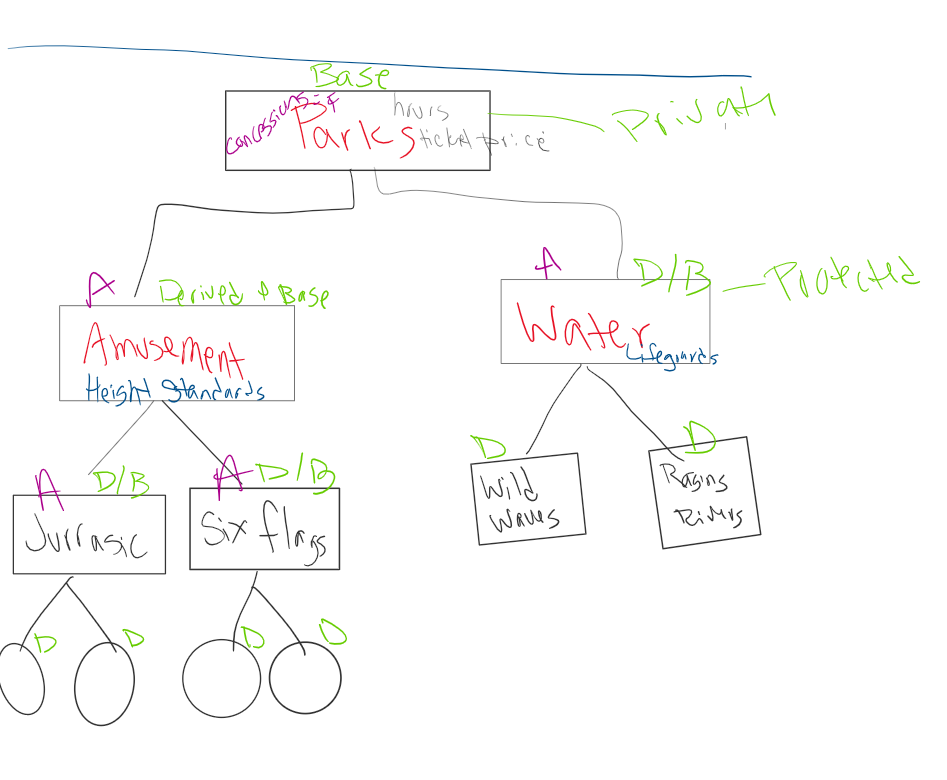 Base
concessions
hours
Parks
ticket price
Private
A
Derived + Base
Amusement
Height Standards
A
D/B
Protected
Water
Lifeguards
A
D/B
Jurrasic
A
D/B
Six flags
D
Wild
Waves
D
Raging
Rivers
D
D
D
D